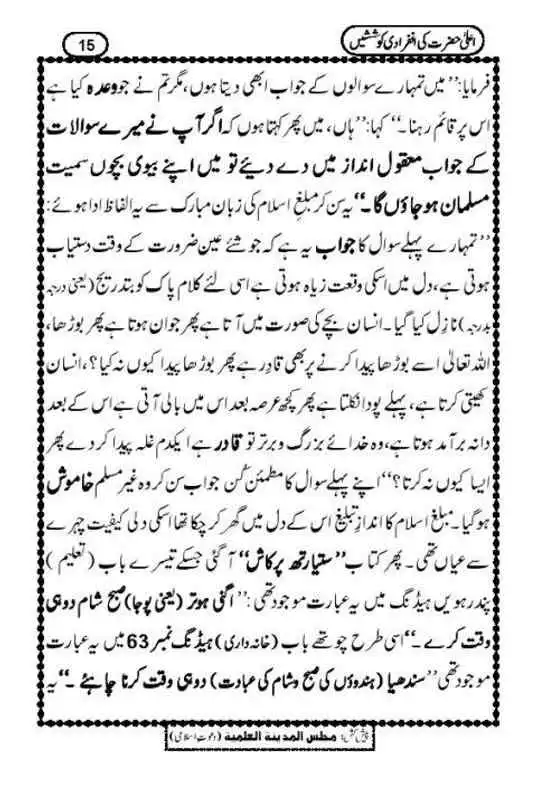 اعلیٰ حضرت کی انفرادی کوششیں
15
فرمایا: ’’میں تمہارے سوالوں کے جواب ابھی دیتا ہوں، مگر تم نے جو وعدہ کیا ہے
اس پر قائم رہنا۔‘‘ کہا: ’’ہاں، میں پھر کہتا ہوں کہ اگر آپ نے میرے سوالات
کے جواب معقول انداز میں دے دیئے تو میں اپنے بیوی بچوں سمیت
مسلمان ہو جاؤں گا۔‘‘ یہ سن کر مبلغِ اسلام کی زبان مبارک سے یہ الفاظ ادا ہوئے:
’’تمہارے پہلے سوال کا جواب یہ ہے کہ جو شئے عین ضرورت کے وقت دستیاب
ہوتی ہے، دل میں اسکی وقعت زیادہ ہوتی ہے اسی لئے کلام پاک کو بتدریج (یعنی درجہ
بدرجہ) نازل کیا گیا۔ انسان بچے کی صورت میں آتا ہے پھر جوان ہوتا ہے پھر بوڑھا،
اللہ تعالیٰ اسے بوڑھا پیدا کرنے پر بھی قادر ہے پھر بوڑھا پیدا کیوں نہ کیا؟، انسان
کھیتی کرتا ہے، پہلے پودا نکلتا ہے پھر کچھ عرصہ بعد اس میں بالی آتی ہے اس کے بعد
دانہ برآمد ہوتا ہے، وہ خدائے بزرگ و برتر تو قادر ہے ایکدم غلہ پیدا کر دے پھر
ایسا کیوں نہ کرتا؟‘‘ اپنے پہلے سوال کا مطمئن کُن جواب سن کر وہ غیر مسلم خاموش
ہو گیا۔ مبلغ اسلام کا اندازِ تبلیغ اس کے دل میں گھر کر چکا تھا اسکی دلی کیفیت چہرے
سے عیاں تھی۔ پھر کتاب ’’ستیارتھ پرکاش‘‘ آ گئی جسکے تیسرے باب (تعلیم)
پندرہویں ہیڈنگ میں یہ عبارت موجود تھی: ’’اگنی ہوتر (یعنی پوجا) صبح شام دو ہی
وقت کرے۔‘‘ اسی طرح چوتھے باب (خانہ داری) ہیڈنگ نمبر 63 میں یہ عبارت
موجود تھی ’’سندھیا (ہندوؤں کی صبح و شام کی عبادت) دو ہی وقت کرنا چاہئے۔‘‘ یہ
پیش کش: مجلس المدينة العلمية (دعوتِ اسلامی)